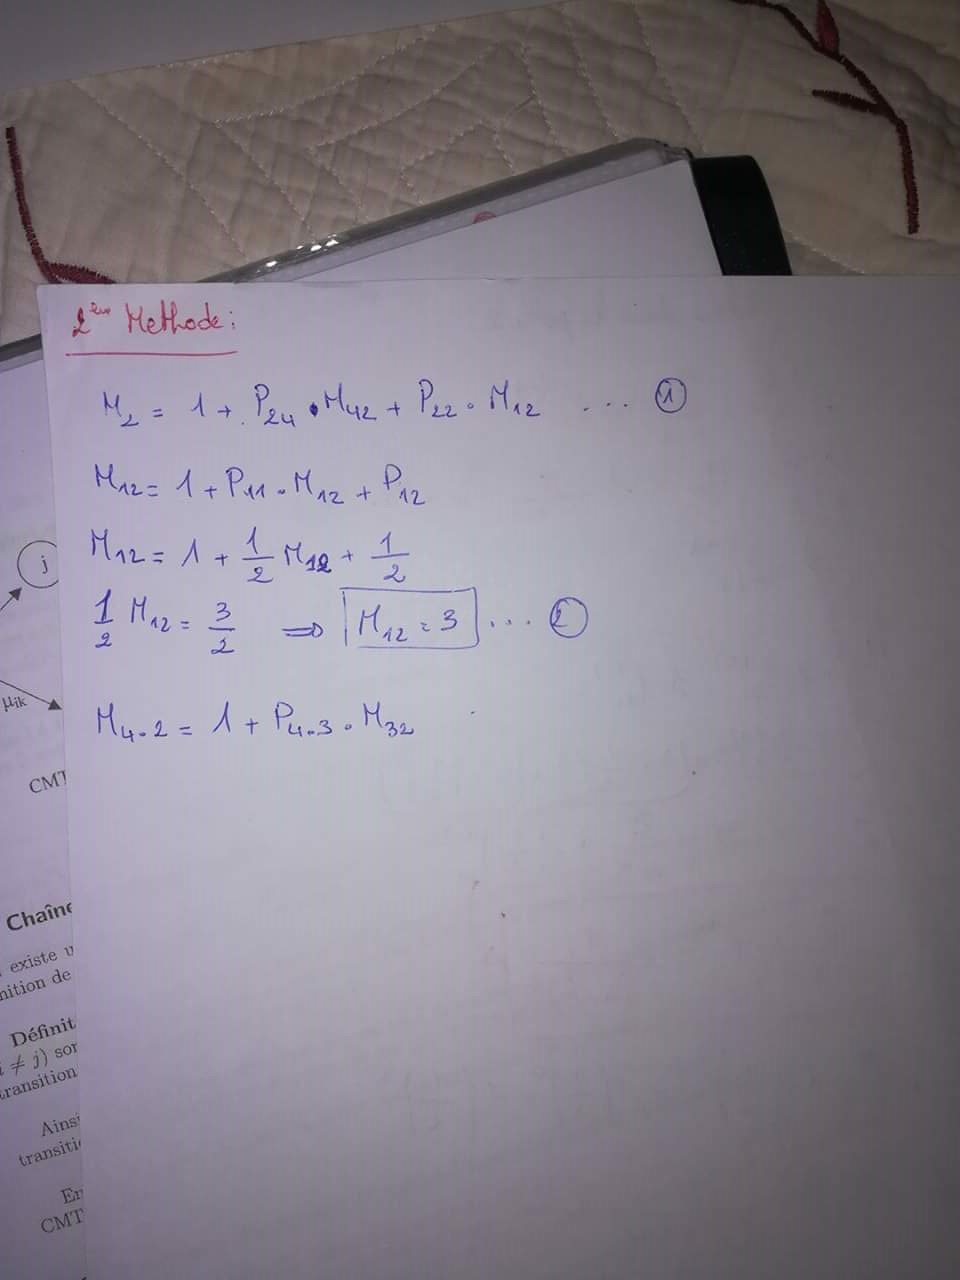 2ème Methode:
M2 = 1 + P24 • M42 + P22 • M12 ... ①
M12 = 1 + P11 • M12 + P12
M12 = 1 + 1/2 M12 + 1/2
1/2 M12 = 3/2 ⇒ M12 = 3 ... ②
M4.2 = 1 + P4.3 • M32
j
μik
CMT
Chaîne
existe u
nition de
Définit
i ≠ j) sor
transition
Ains
transiti
En
CMT